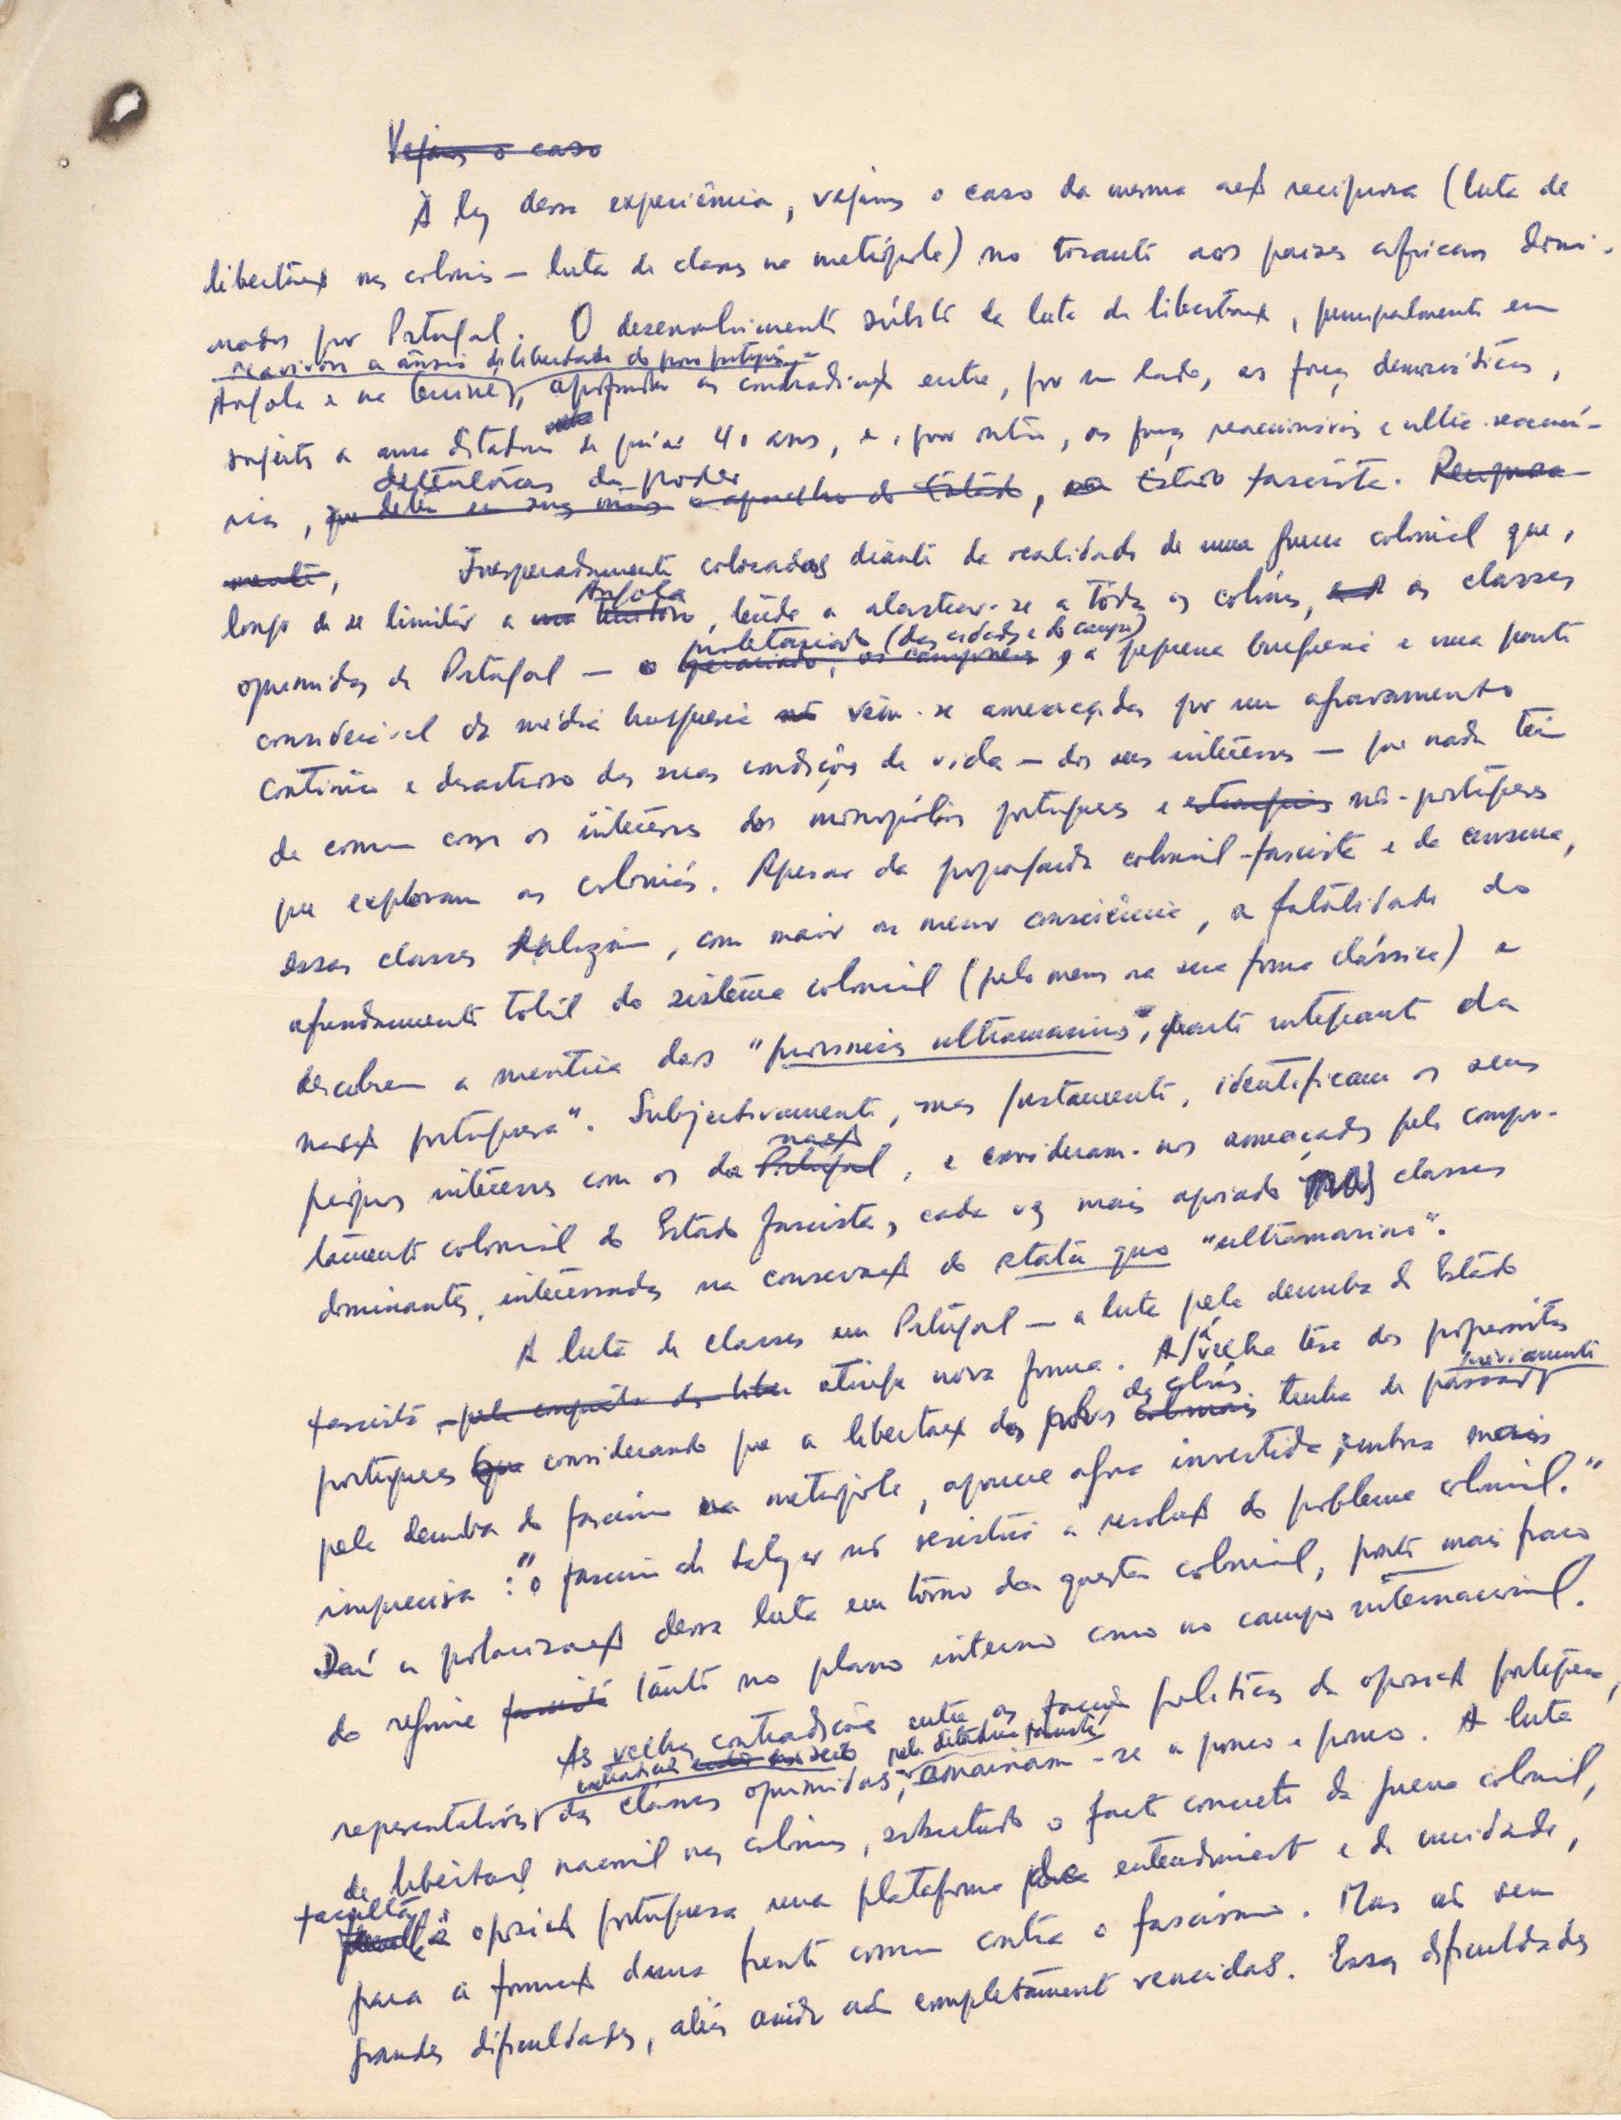 Vejamos o caso
À luz dessa experiência, vejamos o caso da mesma acção recíproca (luta de
libertação nas colónias — luta de classes na metrópole) no tocante aos países africanos domi-
nados por Portugal. O desenvolvimento súbito da luta de libertação, principalmente em
reavivou a ânsia de liberdade do povo português
Angola e na Guiné, aprofundou as contradições entre, por um lado, as forças democráticas,
sujeitas a uma ditadura de quási 40 anos, e, por outro, as forças reaccionárias e ultra-reaccioná-
detentoras do poder
rias, que detêm em suas mãos o aparelho do Estado, no Estado fascista. Recíproca-
mente, Inesperadamente colocadas diante da realidade de uma guerra colonial que,
Angola
longe de se limitar a um território, tende a alastrar-se a todas as colónias, as classes
proletariado (das cidades e do campo)
oprimidas de Portugal — o operariado, os camponeses, a pequena burguesia e uma parte
considerável da média burguesia vêm-se ameaçadas por um agravamento
contínuo e desastroso das suas condições de vida — dos seus interesses — que nada têm
de comum com os interesses dos monopólios portugueses e estrangeiros não-portugueses
que exploram as colónias. Apesar da propaganda colonial-fascista e da censura,
essas classes realizam, com maior ou menor consciência, a fatalidade do
afundamento total do sistema colonial (pelo menos na sua forma clássica) e
descobrem a mentira das "províncias ultramarinas", parte integrante da
nação portuguesa". Subjectivamente, mas justamente, identificam os seus
nação
próprios interesses com os da Portugal, e consideram-nos ameaçados pelo compor-
tamento colonial do Estado fascista, cada vez mais apoiado nas classes
dominantes, interessadas na conservação do statu quo "ultramarino".
A luta de classes em Portugal — a luta pela derruba do Estado
fascista — pela conquista da atinge nova forma. A velha tese dos progressistas
das colónias previamente
portugueses que considerando que a libertação dos povos coloniais tenha de passar
pela derruba do fascismo na metrópole, aparece agora invertida, embora mais
imprecisa: "o fascismo de Salazar não resistirá à resolução do problema colonial."
Daí a polarização dessa luta em tôrno da questão colonial, ponto mais fraco
do regime fascista tanto no plano interno como no campo internacional.
As velhas contradições entre as facções políticas da oposição portuguesa,
pela ditadura fascista
representativas das classes oprimidas, amainam-se a pouco e pouco. A luta
de libertação nacional nas colónias, sobretudo o facto concreto da guerra colonial,
facultou
à oposição portuguesa uma plataforma para entendimento e de unidade,
para a formação duma frente comum contra o fascismo. Mas não sem
grandes dificuldades, aliás ainda não completamente vencidas. Essas dificuldades